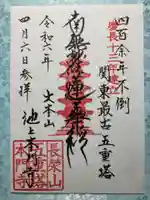 四百余年不倒
慶長十三年建立
関東最古五重塔
南無妙法蓮華経
大本山
令和六年
池上本門寺
四月六日参拝
長榮山
本門寺